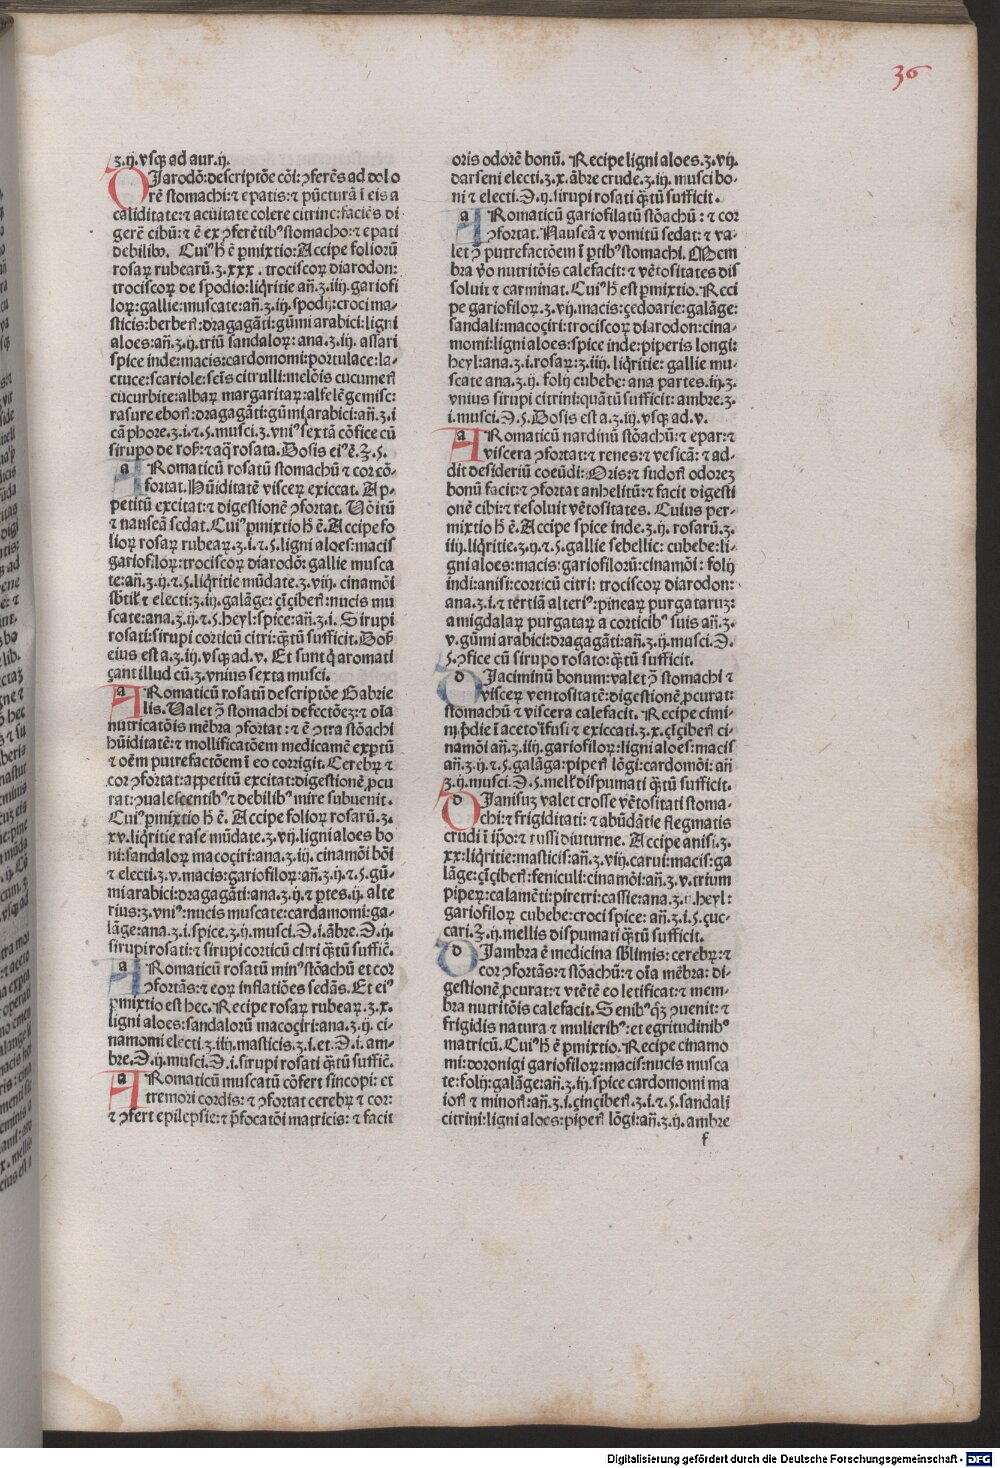 36
ʒ.ij.vsqꝫ ad aur.ij.
DJarodõ: descriptõe cõi: ꝯferẽs ad dolo
rẽ stomachi: ⁊ epatis: ⁊ pũcturã ĩ eis a
caliditate: ⁊ acuitate colere citrine: faciẽs di
gerẽ cibũ: ⁊ ẽ ex ꝯferẽtibꝰ stomacho: ⁊ epati
debilibꝰ. Cuiꝰ h̃ ẽ ꝑmixtio: Accipe foliorũ
rosaꝝ rubearũ.ʒ.xxx. trociscoꝝ diarodon:
trociscoꝝ de spodio: liq̃ritie añ.ʒ.iij. gariofi
loꝝ: gallie: muscate: añ.ʒ.iij. spodij: croci ma-
sticis: berberꝭ: dragagãti: gũmi arabici: ligni
aloes: añ.ʒ.ij. triũ sandaloꝝ: ana.ʒ.iij. assari
spice inde: macis: cardomomi: portulace: la-
ctuce: scariole: sẽis citrulli: melõis cucumerꝭ
cucurbite: albaꝝ margaritaꝝ: alfelẽgemisc:
rasure eborꝭ: dragagãti: gũmi arabici: añ.ʒ.i
cãphore.ʒ.i.⁊.5. musci.ʒ. vniꝰ sextã cõfice cũ
sirupo de rob̃: ⁊ aq̃ rosata. Dosis eiꝰ ẽ.ʒ.5.
ARomaticũ rosatũ stomachũ ⁊ cor cõ-
fortat. Hũiditatẽ visceꝝ exiccat. Ap-
petitũ excitat: ⁊ digestionẽ ꝯfortat. Võitũ
⁊ nauseã sedat. Cuiꝰ ꝑmixtio h̃ ẽ. Accipe fo
lioꝝ rosaꝝ rubeaꝝ.ʒ.i.⁊.5. ligni aloes: macis
gariofiloꝝ: trociscoꝝ diarodõ: gallie musca
te: añ.ʒ.ij.⁊.5. liq̃ritie mũdate.ʒ.viij. cinamõi
sb̃til̃ ⁊ electi.ʒ.iij. galãge: çĩçiberꝭ: nucis mu
scate: ana.ʒ.ij.⁊.5. heyl: spice: añ.ʒ.i. Sirupi
rosati: sirupi corticũ citri: q̃tũ sufficit. Dos̃
eius est a.ʒ.iij. vsqꝫ ad.v. Et sunt q̃ aromati
çant illud cũ.ʒ. vnius sexta musci.
ARomaticũ rosatũ descriptõe Gabrie
lis. Valet ꝯ̃ stomachi defectõeʒ: ⁊ oĩa
nutricatõis mẽbra ꝯfortat: ⁊ ẽ ꝯtra stõachi
hũiditatẽ: ⁊ mollificatõem medicamẽ exptũ
⁊ oẽm putrefactõem ĩ eo corrigit. Cerebꝝ ⁊
cor ꝯfortat: appetitũ excitat: digestionẽ ꝓcu
rat: ꝯualescentibꝰ ⁊ debilibꝰ mire subuenit.
Cuiꝰ ꝑmixtio h̃ ẽ. Accipe folioꝝ rosarũ.ʒ.
xv. liq̃ritie rase mũdate.ʒ.vij. ligni aloes bo
ni: sandaloꝝ macoçiri: ana.ʒ.iij. cinamõi bõi
⁊ electi.ʒ.v. macis: gariofiloꝝ: añ.ʒ.ij.⁊.5. gũ-
mi arabici: dragagãti: ana.ʒ.ij.⁊ ꝑtes.ij. alte
rius: ʒ. vniꝰ: nucis muscate: cardamomi: ga-
lãge: ana.ʒ.i. spice.ʒ.ij. musci.Ə.i. ãbre.Ə.ij.
sirupi rosati: ⁊ sirupi corticũ citri q̃tũ suffič.
ARomaticũ rosatũ minꝰ stõachũ et cor
ꝯfortãs: ⁊ eoꝝ inflatiões sedãs. Et eiꝰ
ꝑmixtio est hec. Recipe rosaꝝ rubeaꝝ.ʒ.x.
ligni aloes: sandalorũ macoçiri: ana.ʒ.ij. ci-
namomi electi.ʒ.iij. masticis.ʒ.i. et.Ə.i. am-
bre.Ə.ij. musci.Ə.i. sirupi rosati q̃tũ suffič.
ARomaticũ muscatũ cõfert sincopi: et
tremori cordis: ⁊ ꝯfortat cerebꝝ ⁊ cor:
⁊ ꝯfert epilepsie: ⁊ p̃focatõi matricis: ⁊ facit
oris odorẽ bonũ. Recipe ligni aloes.ʒ.vij.
darseni electi.ʒ.x. ãbre crude.ʒ.iij. musci bo-
ni ⁊ electi.Ə.ij. sirupi rosati q̃tũ sufficit.
ARomaticũ gariofilatũ stõachũ: ⁊ cor
ꝯfortat. Nauseã ⁊ vomitũ sedat: ⁊ va-
let ꝯ̃ putrefactõem ĩ ꝑtibꝰ stomachi. Mem
bra ṽo nutritõis calefacit: ⁊ vẽtositates dis
soluit ⁊ carminat. Cuiꝰ h̃ est ꝑmixtio. Reci
pe gariofiloꝝ.ʒ.vij. macis: çedoarie: galãge:
sandali: macoçiri: trociscoꝝ diarodon: cina-
momi: ligni aloes: spice inde: piperis longi:
heyl: ana.ʒ.i. rosaꝝ: ʒ.iiij. liq̃ritie: gallie mu-
scate ana.ʒ.ij. folij cubebe: ana partes.ij.ʒ.
vnius sirupi citrini: quãtũ sufficit: ambre.ʒ.
i. musci.Ə.5. Dosis est a.ʒ.iij. vsqꝫ ad.v.
ARomaticũ nardinũ stõachũ: ⁊ epar: ⁊
viscera ꝯfortat: ⁊ renes: ⁊ vesicã: ⁊ ad-
dit desideriũ coeũdi: Oris: ⁊ sudorꝭ odoreʒ
bonũ facit: ⁊ ꝯfortat anhelitũ: ⁊ facit digesti
onẽ cibi: ⁊ resoluit vẽtositates. Cuius per-
mixtio h̃ ẽ. Accipe spice inde.ʒ.ij. rosarũ.ʒ.
iij. liq̃ritie.ʒ.ij.⁊.5. gallie sebellie: cubebe: li-
gni aloes: macis: gariofilorũ: cinamõi: folij
indi: anisi: corticũ citri: trociscoꝝ diarodon:
ana.ʒ.i.⁊ tertiã alteriꝰ: pineaꝝ purgataruʒ:
amigdalaꝝ purgataꝝ a corticibꝰ suis añ.ʒ.
v. gũmi arabici: dragagãti: añ.ʒ.ij. musci.Ə.
5. ꝯfice cũ sirupo rosato: q̃tũ sufficit.
DJaciminũ bonum: valet ꝯ̃ stomachi ⁊
visceꝝ ventositatẽ: digestionẽ ꝓcurat:
stomachũ ⁊ viscera calefacit. Recipe cimi-
ni p̃die ĩ aceto ĩfusi ⁊ exiccati.ʒ.x. çĩçiberꝭ ci-
namõi añ.ʒ.iiij. gariofiloꝝ: ligni aloes: macis
añ.ʒ.ij.⁊.5. galãga: piperꝭ lõgi: cardomõi: añ
ʒ.ij. musci.Ə.5. mellꝭ dispumati q̃tũ sufficit.
DJanisuʒ valet grosse vẽtositati stoma-
chi: ⁊ frigiditati: ⁊ abũdãtie flegmatis
crudi ĩ ip̃o: ⁊ tussi diuturne. Accipe anisi.ʒ.
xx: liq̃ritie: masticis: añ.ʒ.viij. carui: macis: ga
lãge: çĩçiberꝭ: feniculi: cinamõi: añ.ʒ.v. trium
piperꝝ: calamẽti: piretri: cassie: ana.ʒ.ij. heyl:
gariofiloꝝ cubebe: croci spice: añ.ʒ.i.5. çuc-
cari.ʒ.ij. mellis dispumati q̃tũ sufficit.
DJambra ẽ medicina sb̃limis: cerebꝝ: ⁊
cor ꝯfortãs: ⁊ stõachũ: ⁊ oĩa mẽbra: di-
gestionẽ ꝓcurat: ⁊ vtẽtẽ eo letificat: ⁊ mem-
bra nutritõis calefacit. Senibꝰ qꝫ ꝯuenit: ⁊
frigidis natura ⁊ mulieribꝰ: et egritudinibꝰ
matricũ. Cuiꝰ h̃ ẽ ꝑmixtio. Recipe cinamo
mi: doronigi gariofiloꝝ: macis: nucis musca
te: folij: galãge: añ.ʒ.iij. spice cardomomi ma
iorꝭ ⁊ minorꝭ: añ.ʒ.i. çinçiberꝭ.ʒ.i.⁊.5. sandali
citrini: ligni aloes: piperꝭ lõgi: añ.ʒ.ij. ambre
f
Digitalisierung gefördert durch die Deutsche Forschungsgemeinschaft - DFG